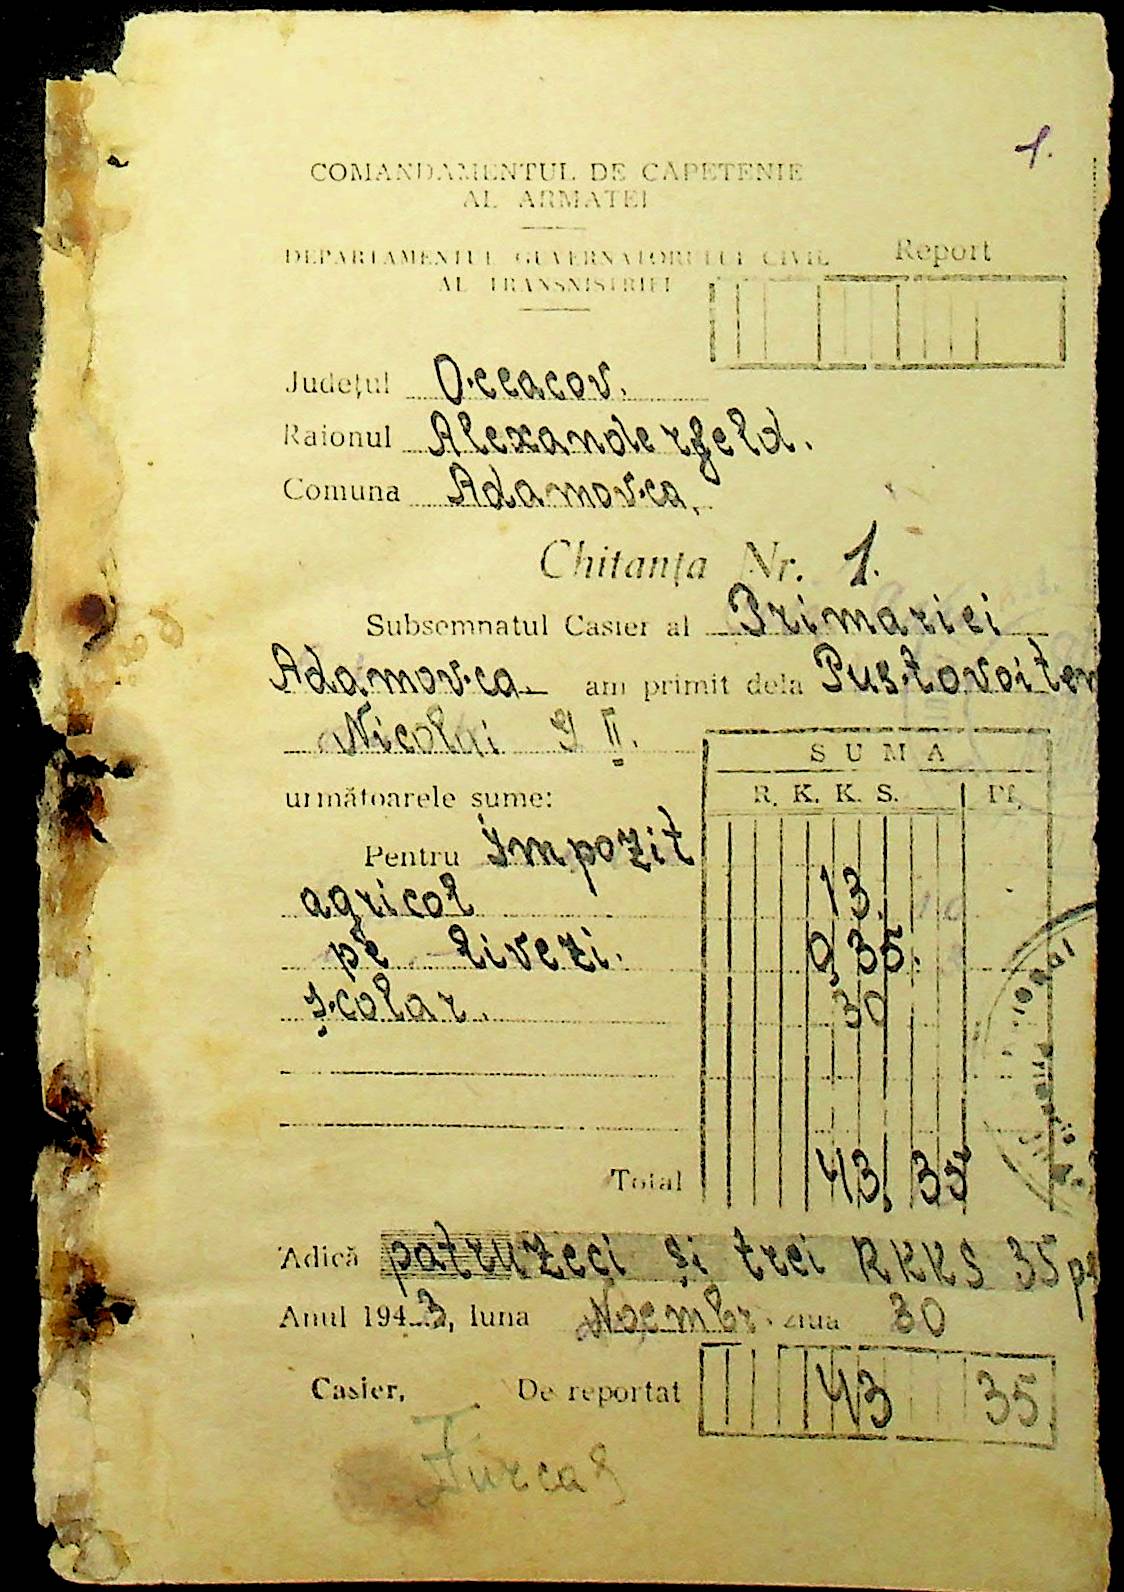 1.
COMANDAMENTUL DE CAPETENIE
AL ARMATEI
DEPARTAMENTUL GUVERNATORULUI CIVIL
AL TRANSNISTRIEI
Report
Județul Oceacov.
Raionul Alexanderfeld.
Comuna Adamovca,
Chitanța Nr. 1.
Subsemnatul Casier al Primariei
Adamovca am primit dela Pustovoiten
Nicolai I II.
SUMA
următoarele sume:
R. K. K. S. Pf.
Pentru Impozit
agricol 13.
pe livezi. 0,35.
școlar. 30
Total 43, 35
Adică patruzeci și trei RKKS 35 pf
Anul 1943, luna Noembr ziua 30
Casier, De reportat 43 35